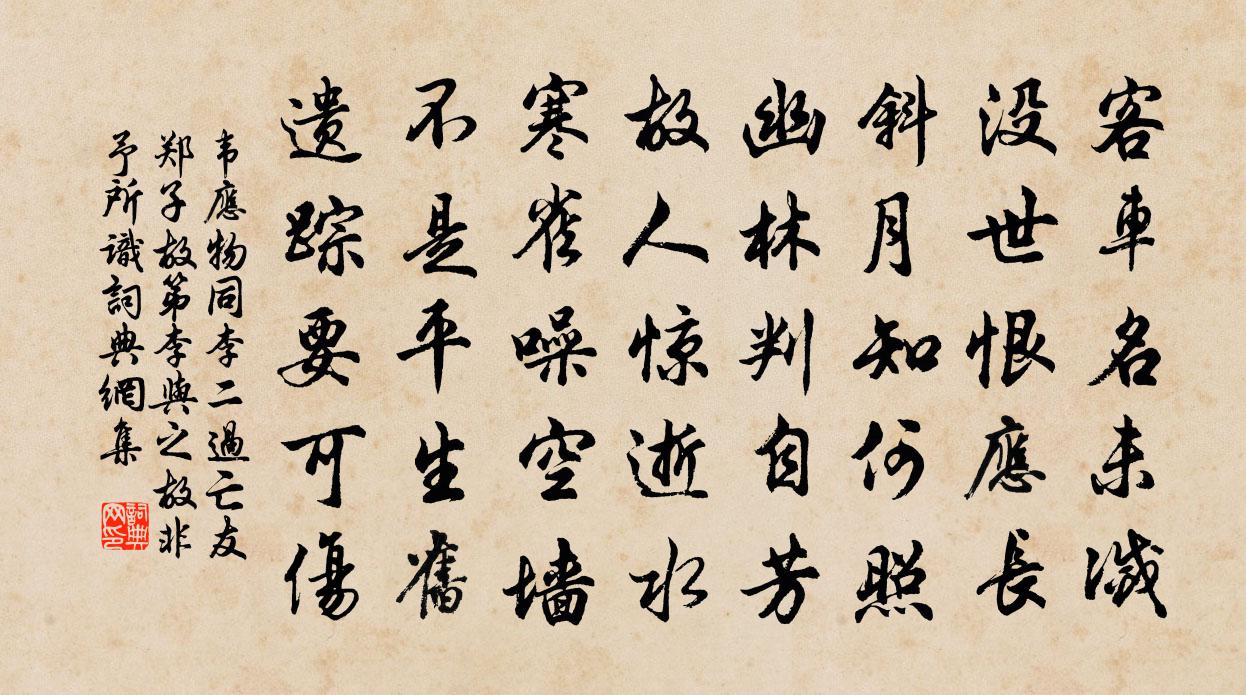 客車名未滅
没世恨應長
斜月知何照
幽林判自芳
故人惊逝水
寒雀噪空墙
不是平生舊
遗踪要可傷
韦應物同李二過亡友
郑子故第李與之故非
予所識詞典網集
詞典网印